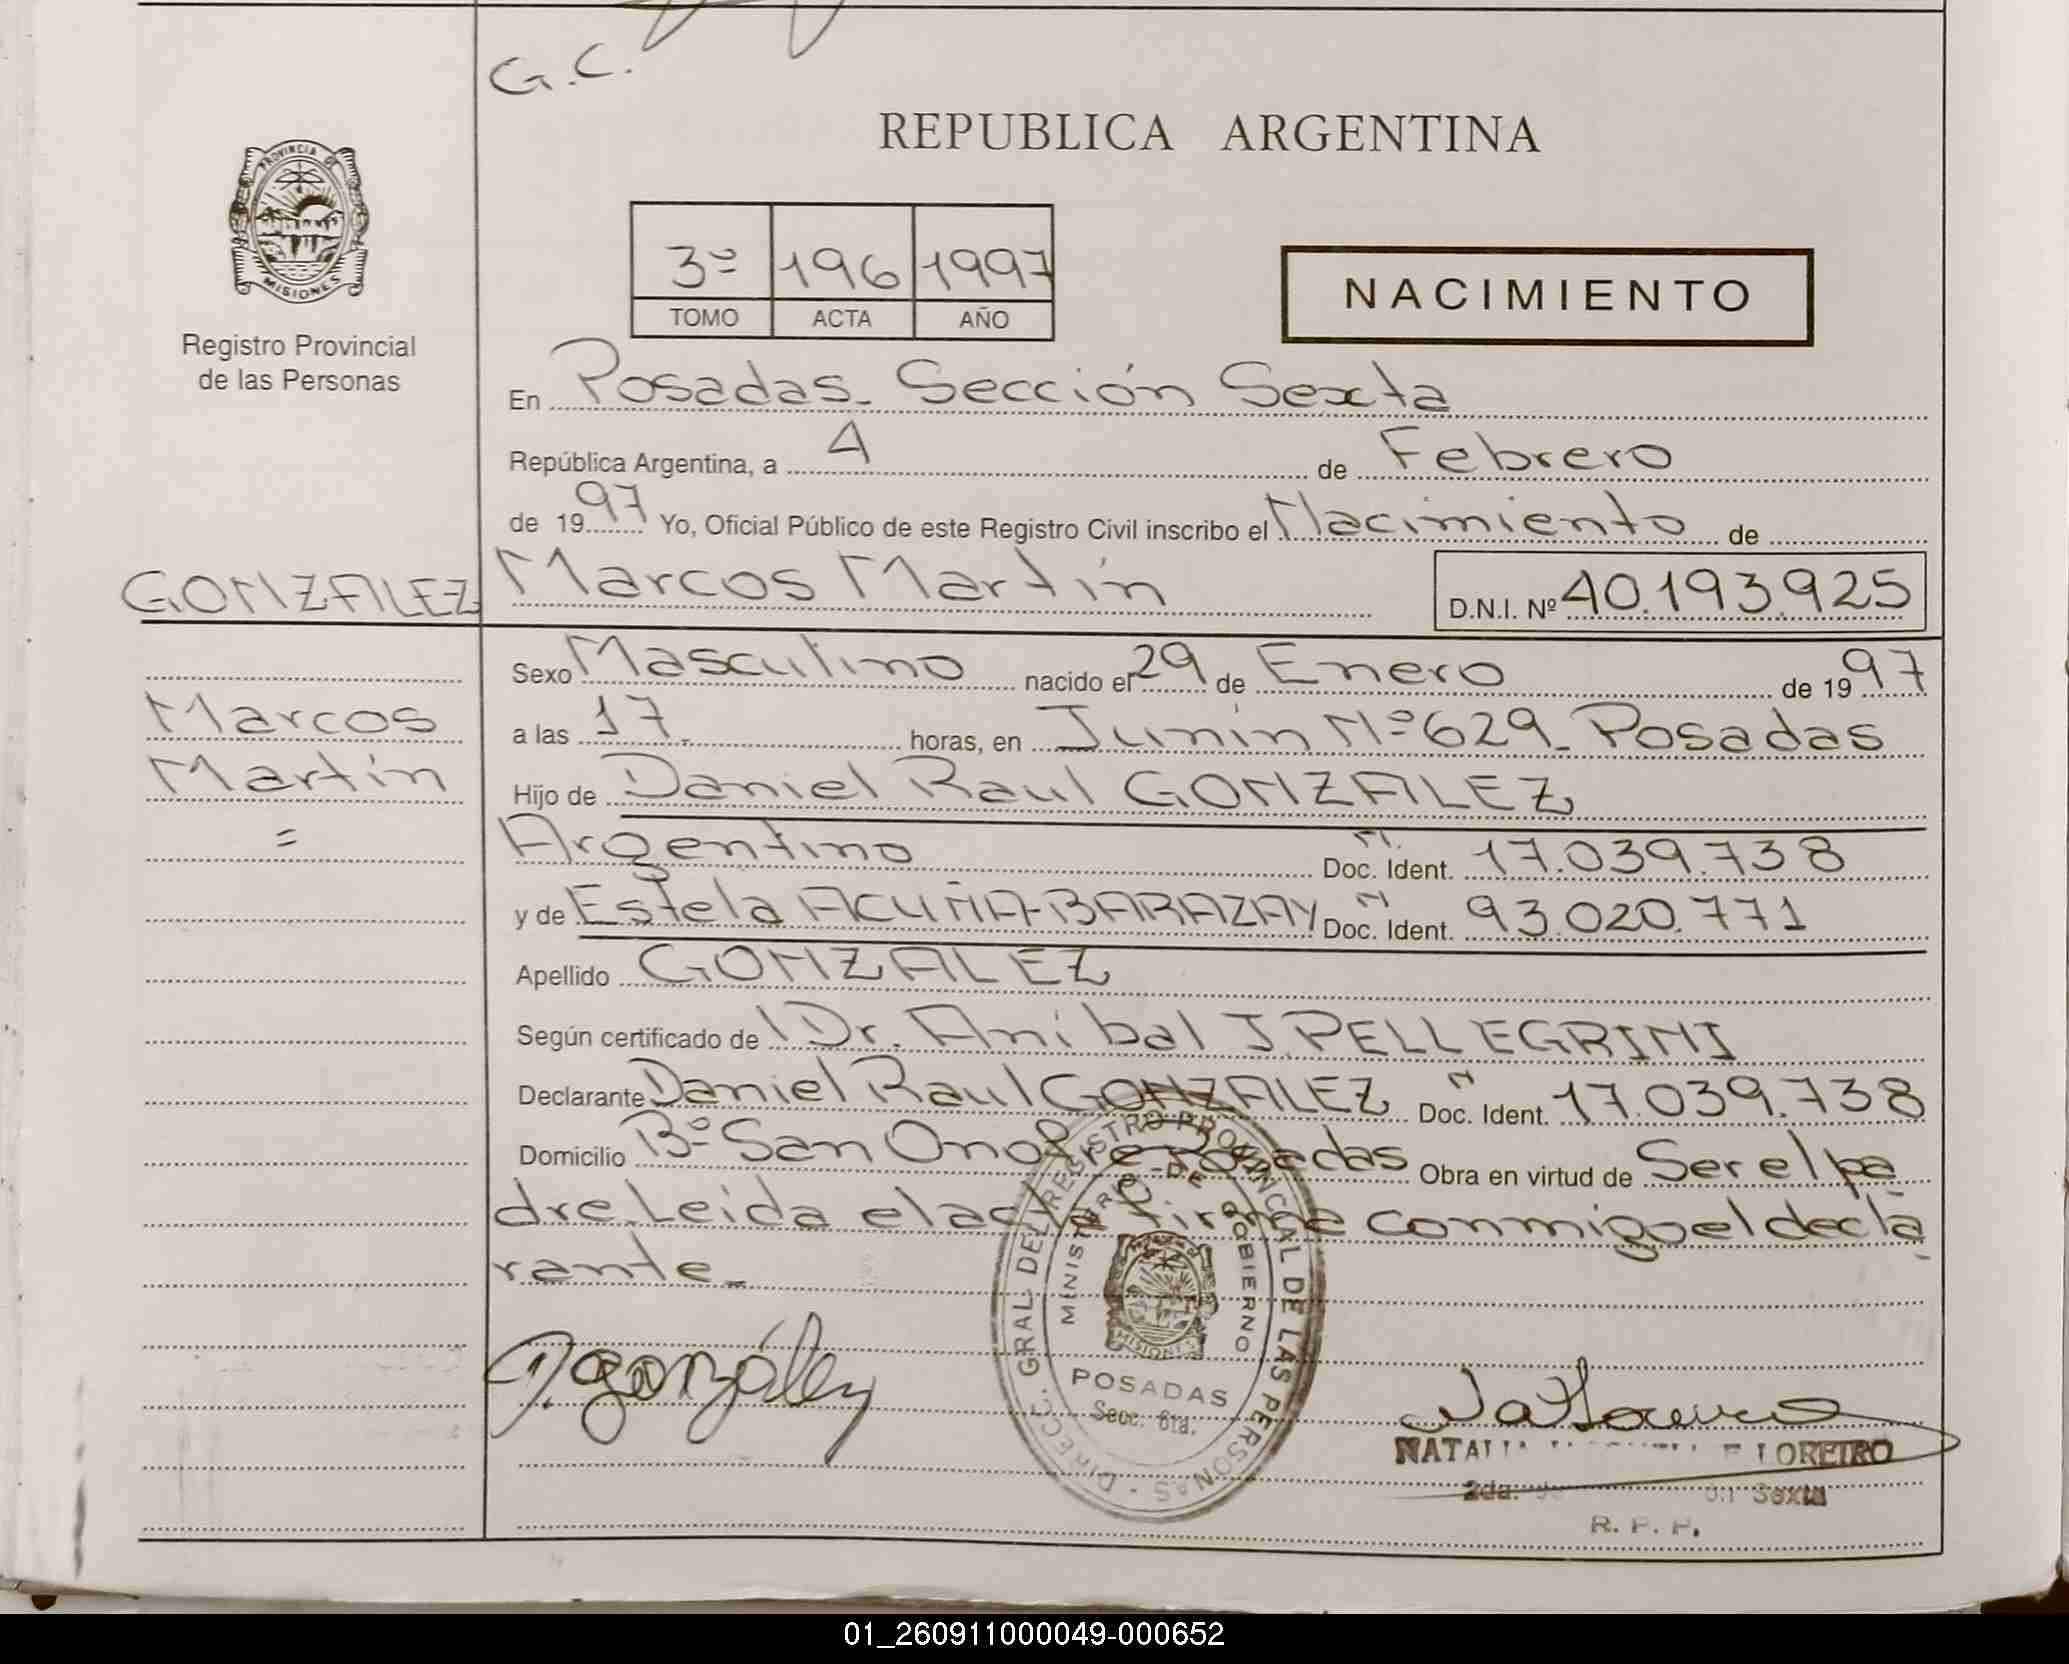 G.C.
REPUBLICA ARGENTINA
PROVINCIA DE
MISIONES
Registro Provincial
de las Personas
3º 196 1997
TOMO ACTA AÑO
NACIMIENTO
En Posadas. Sección Sexta
República Argentina, a 4 de Febrero
de 1997 Yo, Oficial Público de este Registro Civil inscribo el Nacimiento de
GONZALEZ Marcos Martín D.N.I. Nº 40.193.925
Sexo Masculino nacido el 29 de Enero de 1997
Marcos
a las 17. horas, en Junín Nº 629. Posadas
Martín
Hijo de Daniel Raul GONZALEZ
=
Argentino N. Doc. Ident. 17.039.738
y de Estela ACUÑA-BARAZAY N Doc. Ident. 93.020.771
Apellido GONZALEZ
Según certificado de Dr. Anibal J. PELLEGRINI
Declarante Daniel Raul GONZALEZ N Doc. Ident. 17.039.738
Domicilio Bº San Onofre Posadas Obra en virtud de Ser el pa
dre. Leida el acta firma conmigo el decla
rante.
DIRECC. GRAL DEL REGISTRO PROVINCIAL DE LAS PERSONAS
MINISTERIO DE GOBIERNO
MISIONES
POSADAS
Secc. 6ta.
D. gonzález
LOREIRO
2da. Sexta
R. P. P.
01_260911000049-000652